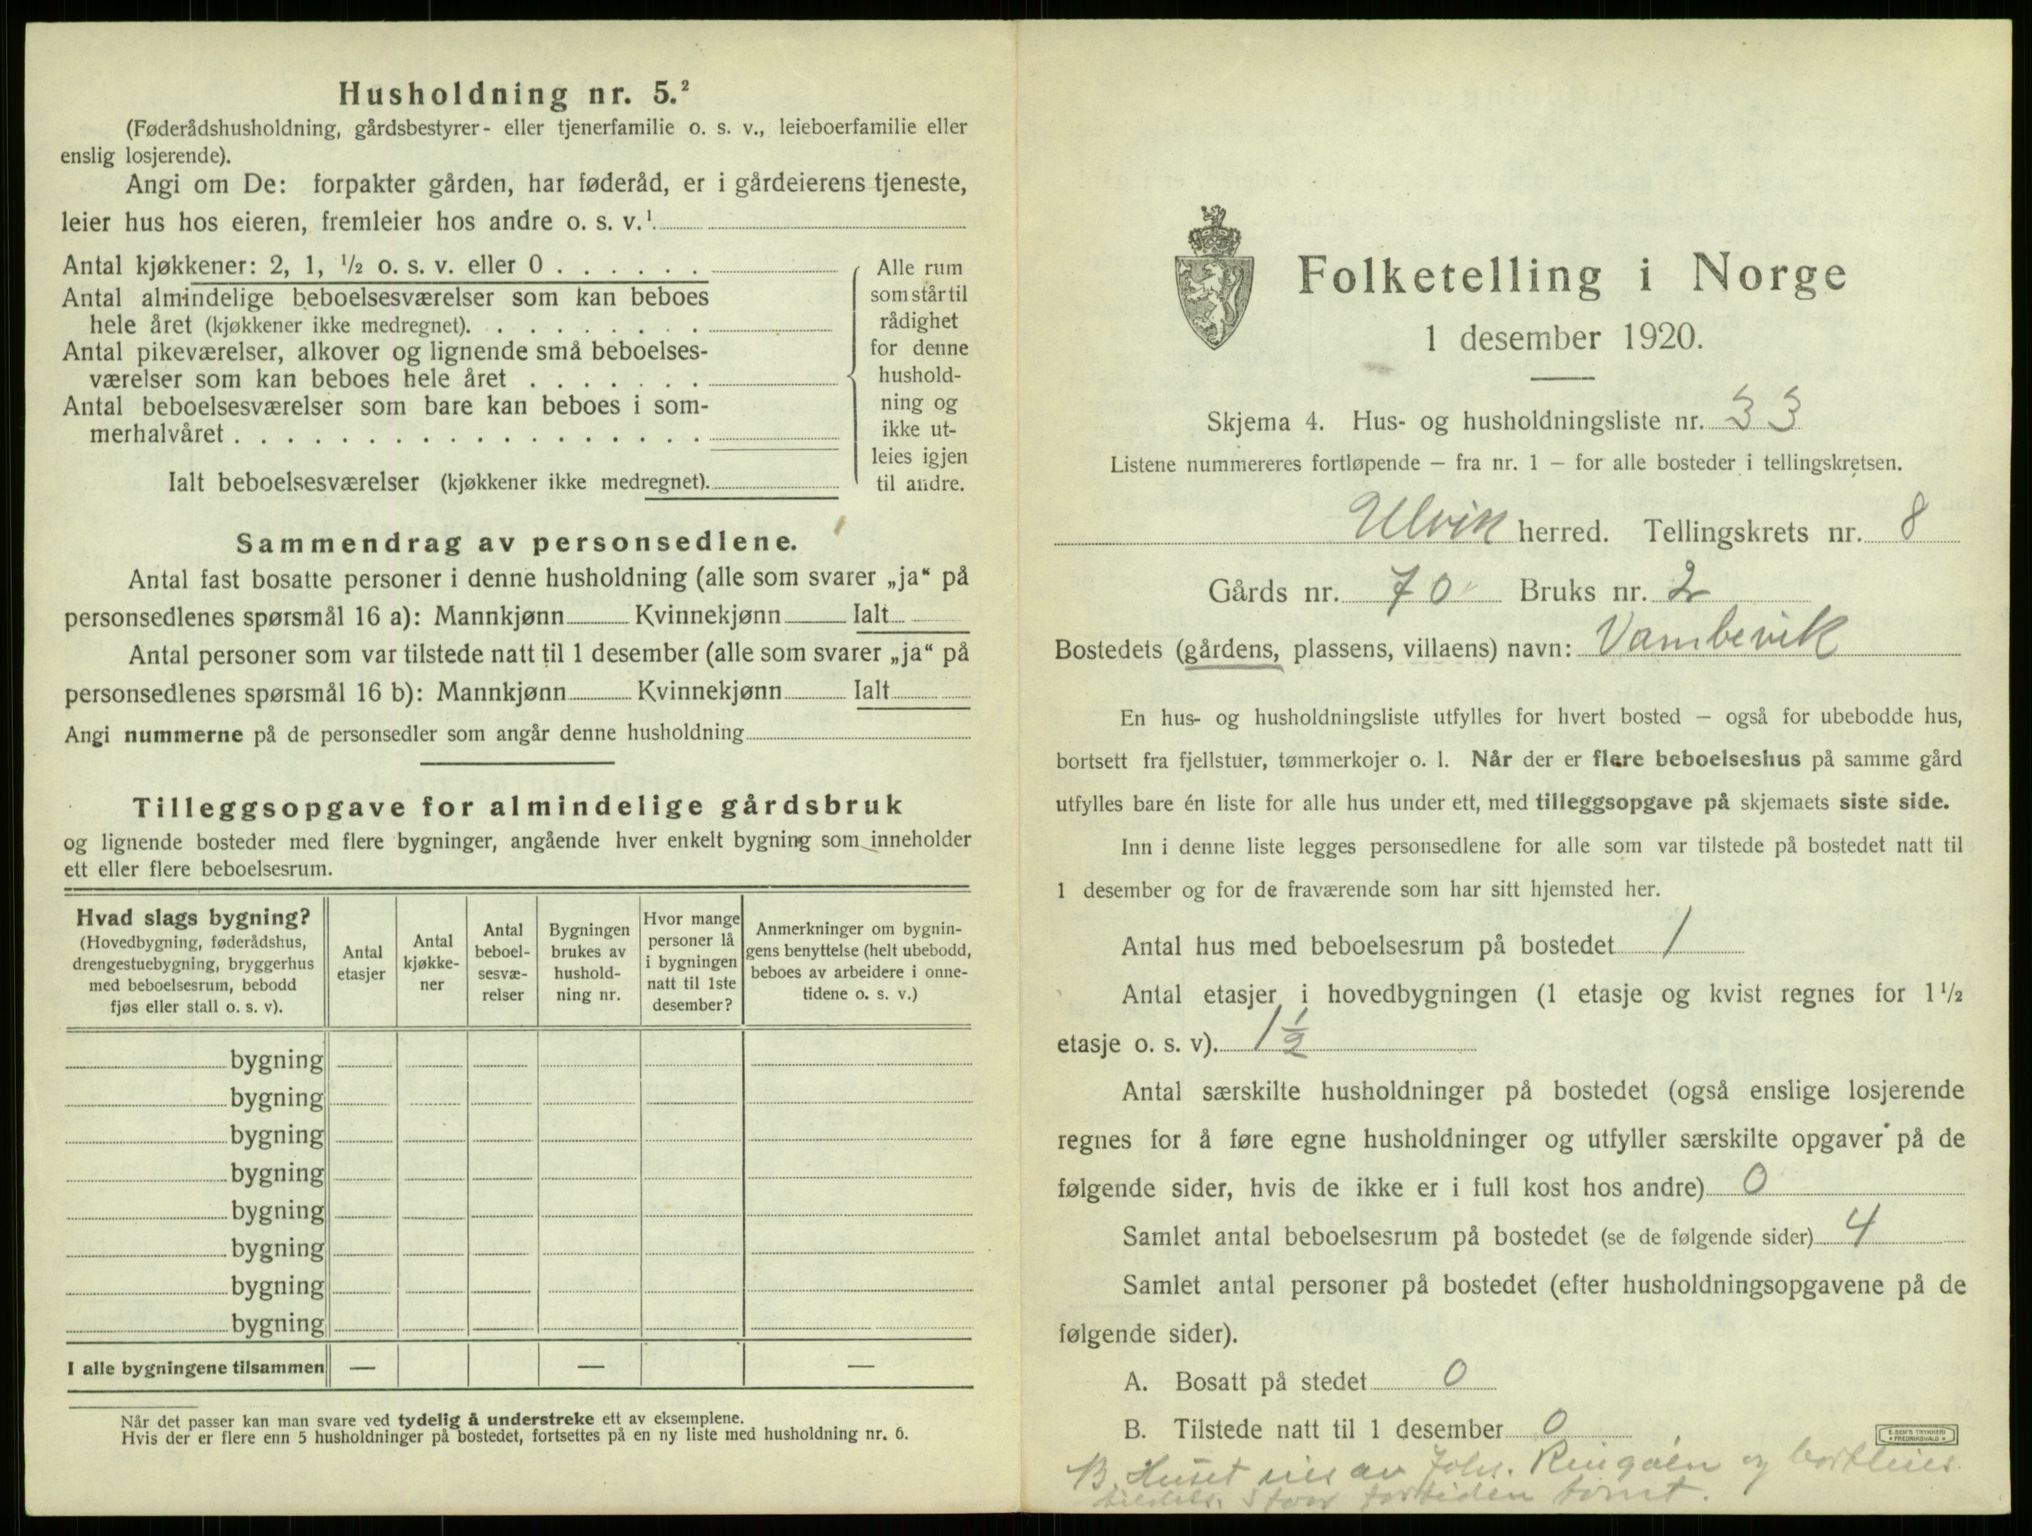 Husholdning nr. 5.²
(Føderådshusholdning, gårdsbestyrer- eller tjenerfamilie o. s. v., leieboerfamilie eller
enslig losjerende).
Angi om De: forpakter gården, har føderåd, er i gårdeierens tjeneste,
leier hus hos eieren, fremleier hos andre o. s. v.¹
Antal kjøkkener: 2, 1, ½ o. s. v. eller 0 . . . . . .
Antal almindelige beboelsesværelser som kan beboes
hele året (kjøkkener ikke medregnet). . . . . . . . .
Antal pikeværelser, alkover og lignende små beboelses-
værelser som kan beboes hele året . . . . . . .
Antal beboelsesværelser som bare kan beboes i som-
merhalvåret . . . . . . . . . . . . . . . . . .
Ialt beboelsesværelser (kjøkkener ikke medregnet).
Alle rum
som står til
rådighet
for denne
hushold-
ning og
ikke ut-
leies igjen
til andre.
Sammendrag av personsedlene.
Antal fast bosatte personer i denne husholdning (alle som svarer „ja“ på
personsedlenes spørsmål 16 a): Mannkjønn Kvinnekjønn Ialt
Antal personer som var tilstede natt til 1 desember (alle som svarer „ja“ på
personsedlenes spørsmål 16 b): Mannkjønn Kvinnekjønn Ialt
Angi nummerne på de personsedler som angår denne husholdning
Tilleggsopgave for almindelige gårdsbruk
og lignende bosteder med flere bygninger, angående hver enkelt bygning som inneholder
ett eller flere beboelsesrum.
Hvad slags bygning?
(Hovedbygning, føderådshus,
drengestuebygning, bryggerhus
med beboelsesrum, bebodd
fjøs eller stall o. s. v).
Antal
etasjer
Antal
kjøkke-
ner
Antal
beboel-
sesvæ-
relser
Bygningen
brukes av
hushold-
ning nr.
Hvor mange
personer lå
i bygningen
natt til 1ste
desember?
Anmerkninger om bygnin-
gens benyttelse (helt ubebodd,
beboes av arbeidere i onne-
tidene o. s. v.)
bygning
bygning
bygning
bygning
bygning
bygning
bygning
bygning
I alle bygningene tilsammen — — —
Når det passer kan man svare ved tydelig å understreke ett av eksemplene.
Hvis der er flere enn 5 husholdninger på bostedet, fortsettes på en ny liste med husholdning nr. 6.
Folketelling i Norge
1 desember 1920.
Skjema 4. Hus- og husholdningsliste nr. 33
Listene nummereres fortløpende – fra nr. 1 – for alle bosteder i tellingskretsen.
Ulvik herred. Tellingskrets nr. 8
Gårds nr. 70 Bruks nr. 2
Bostedets (gårdens, plassens, villaens) navn: Vambevik
En hus- og husholdningsliste utfylles for hvert bosted – også for ubebodde hus,
bortsett fra fjellstuer, tømmerkojer o. l. Når der er flere beboelseshus på samme gård
utfylles bare én liste for alle hus under ett, med tilleggsopgave på skjemaets siste side.
Inn i denne liste legges personsedlene for alle som var tilstede på bostedet natt til
1 desember og for de fraværende som har sitt hjemsted her.
Antal hus med beboelsesrum på bostedet 1
Antal etasjer i hovedbygningen (1 etasje og kvist regnes for 1 ½
etasje o. s. v). 1 ½
Antal særskilte husholdninger på bostedet (også enslige losjerende
regnes for å føre egne husholdninger og utfyller særskilte opgaver på de
følgende sider, hvis de ikke er i full kost hos andre) 0
Samlet antal beboelsesrum på bostedet (se de følgende sider) 4
Samlet antal personer på bostedet (efter husholdningsopgavene på de
følgende sider).
A. Bosatt på stedet 0
B. Tilstede natt til 1 desember 0
E. SEM'S TRYKKERI
FREDRIKSHALD
Huset eies av Johs. Ringøen og bortleies
tildels. Staar fortiden tomt.